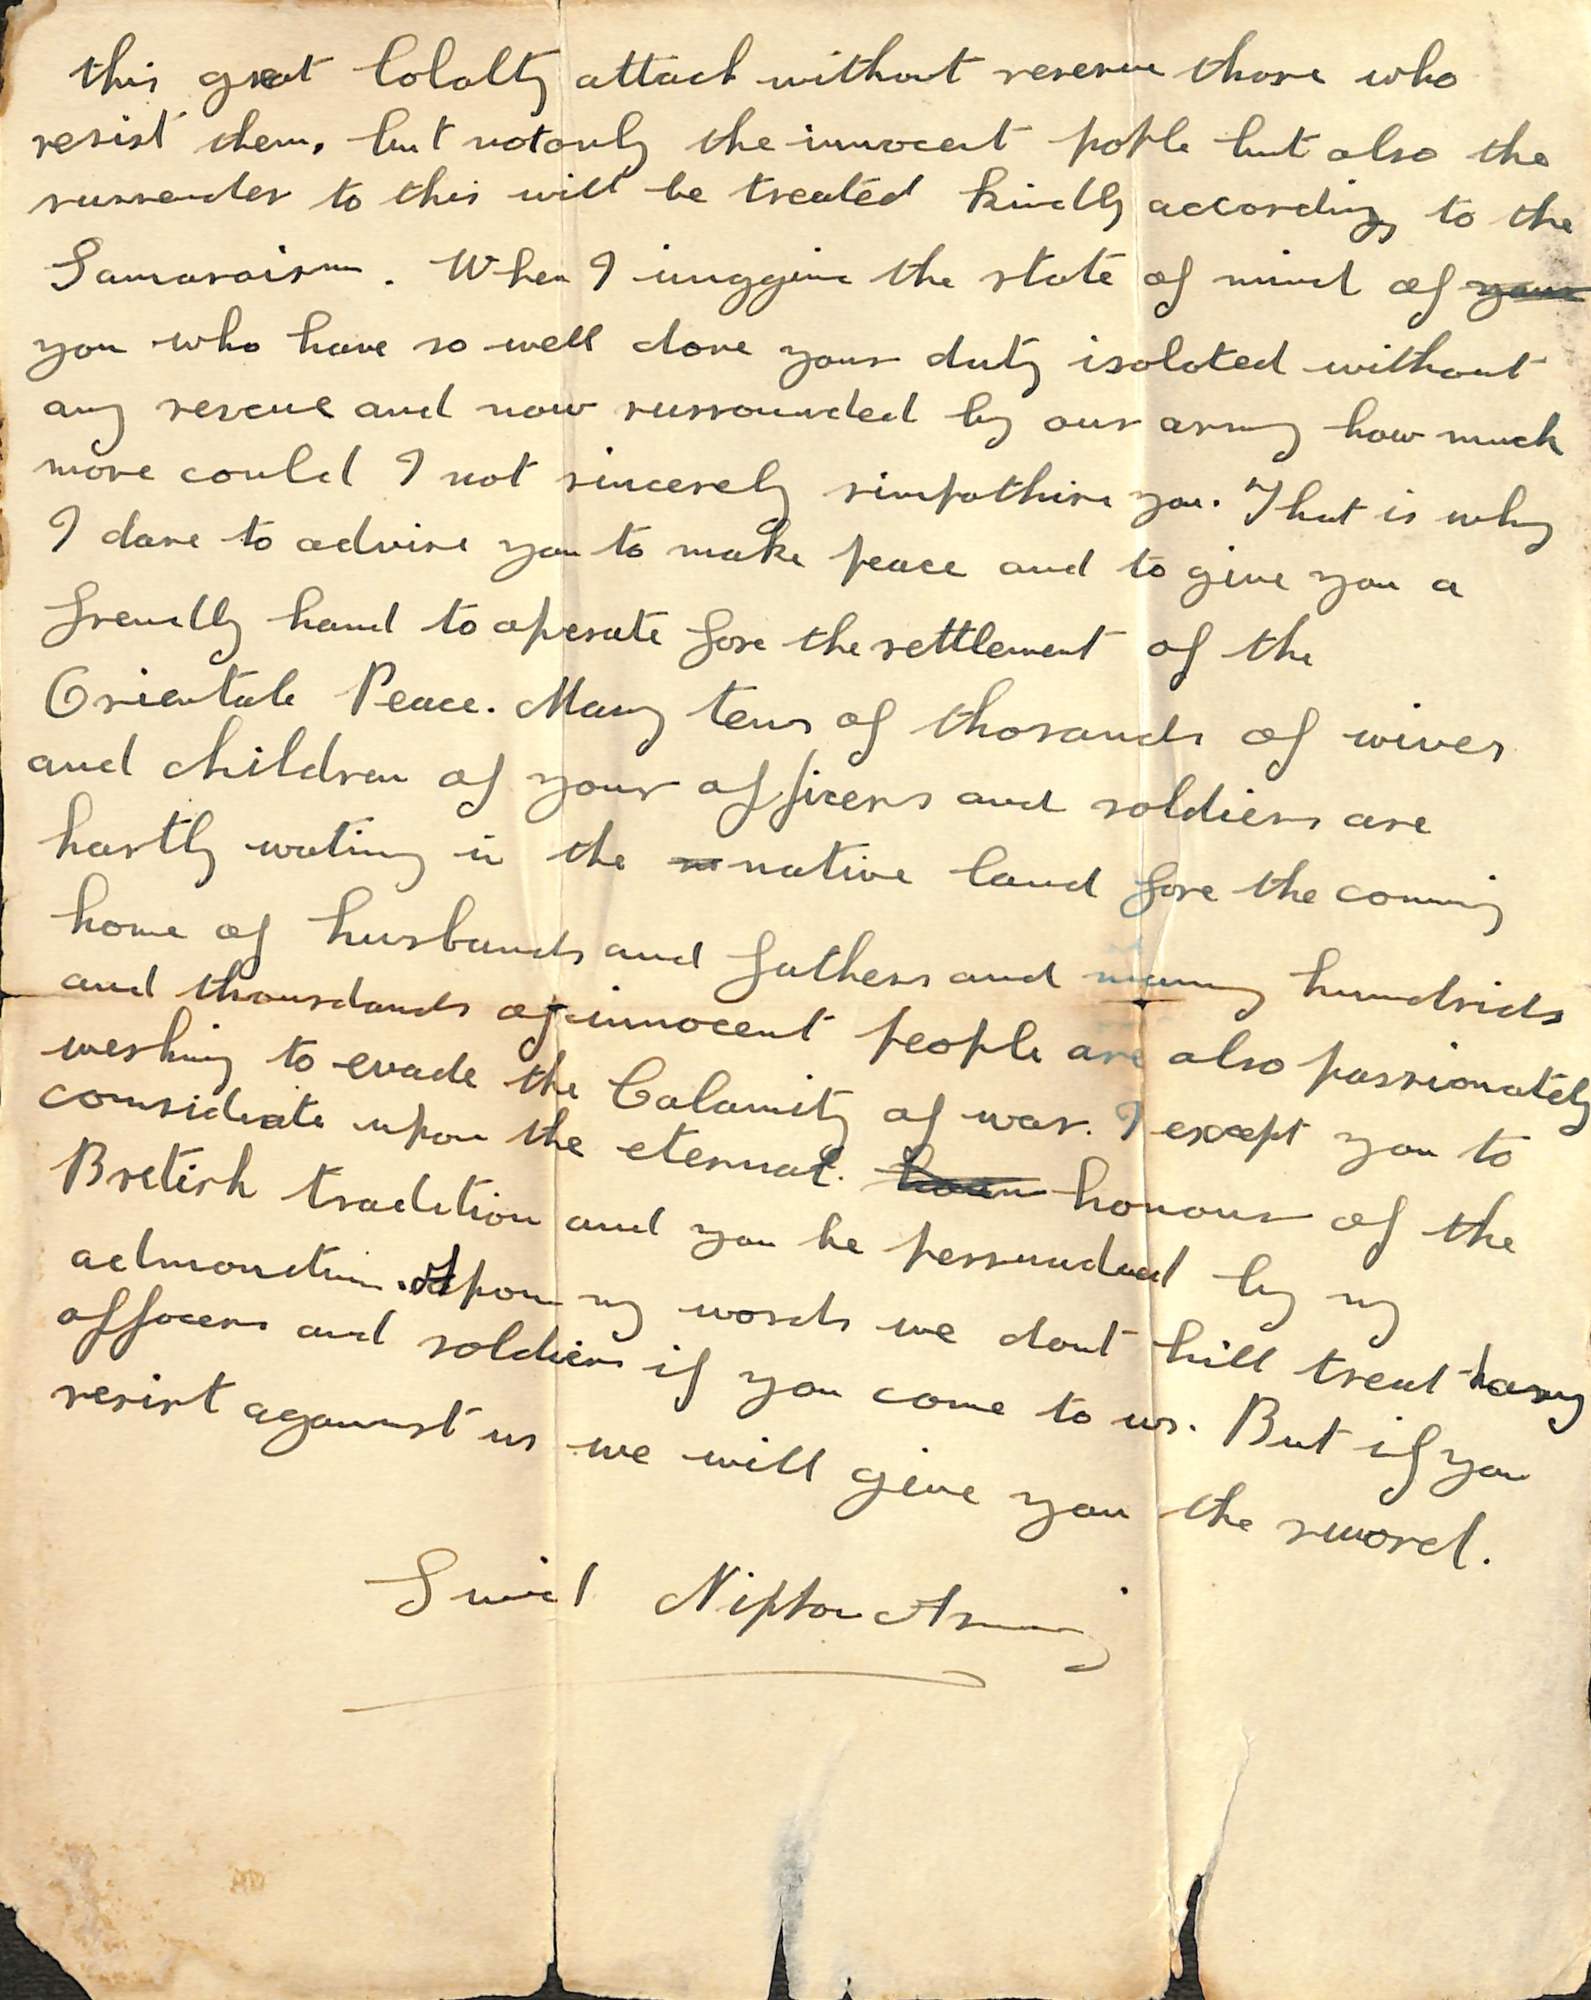 this great lolalty attack without reserve those who
resist them, but not only the innocent pople but also the
surrender to this will be treated kindly according to the
Samaraism. When I inggine the state of mind of your
you who have so well done your duty isolated without
any rescue and now surrounded by our army how much
more could I not sincerely simpathise you. That is why
I dare to advise you to make peace and to give you a
frendly hand to operate fore the settlement of the
Orientale Peace. Many tens of thosands of wives
and children of your officers and soldiers are
hartly wating in the native land fore the coming
home of husbands and fathers and many hundrids
and thousdands of innocent people are also passionately
weshing to evade the Calamity of war. I except you to
comsideate upon the eternal. honour of the
Bretish tradition and you be persuaded by my
admonition. Upon my words we dont hill treat any
offocers and soldiers if you come to us. But if you
resist against us we will give you the sword.
Nippon Army